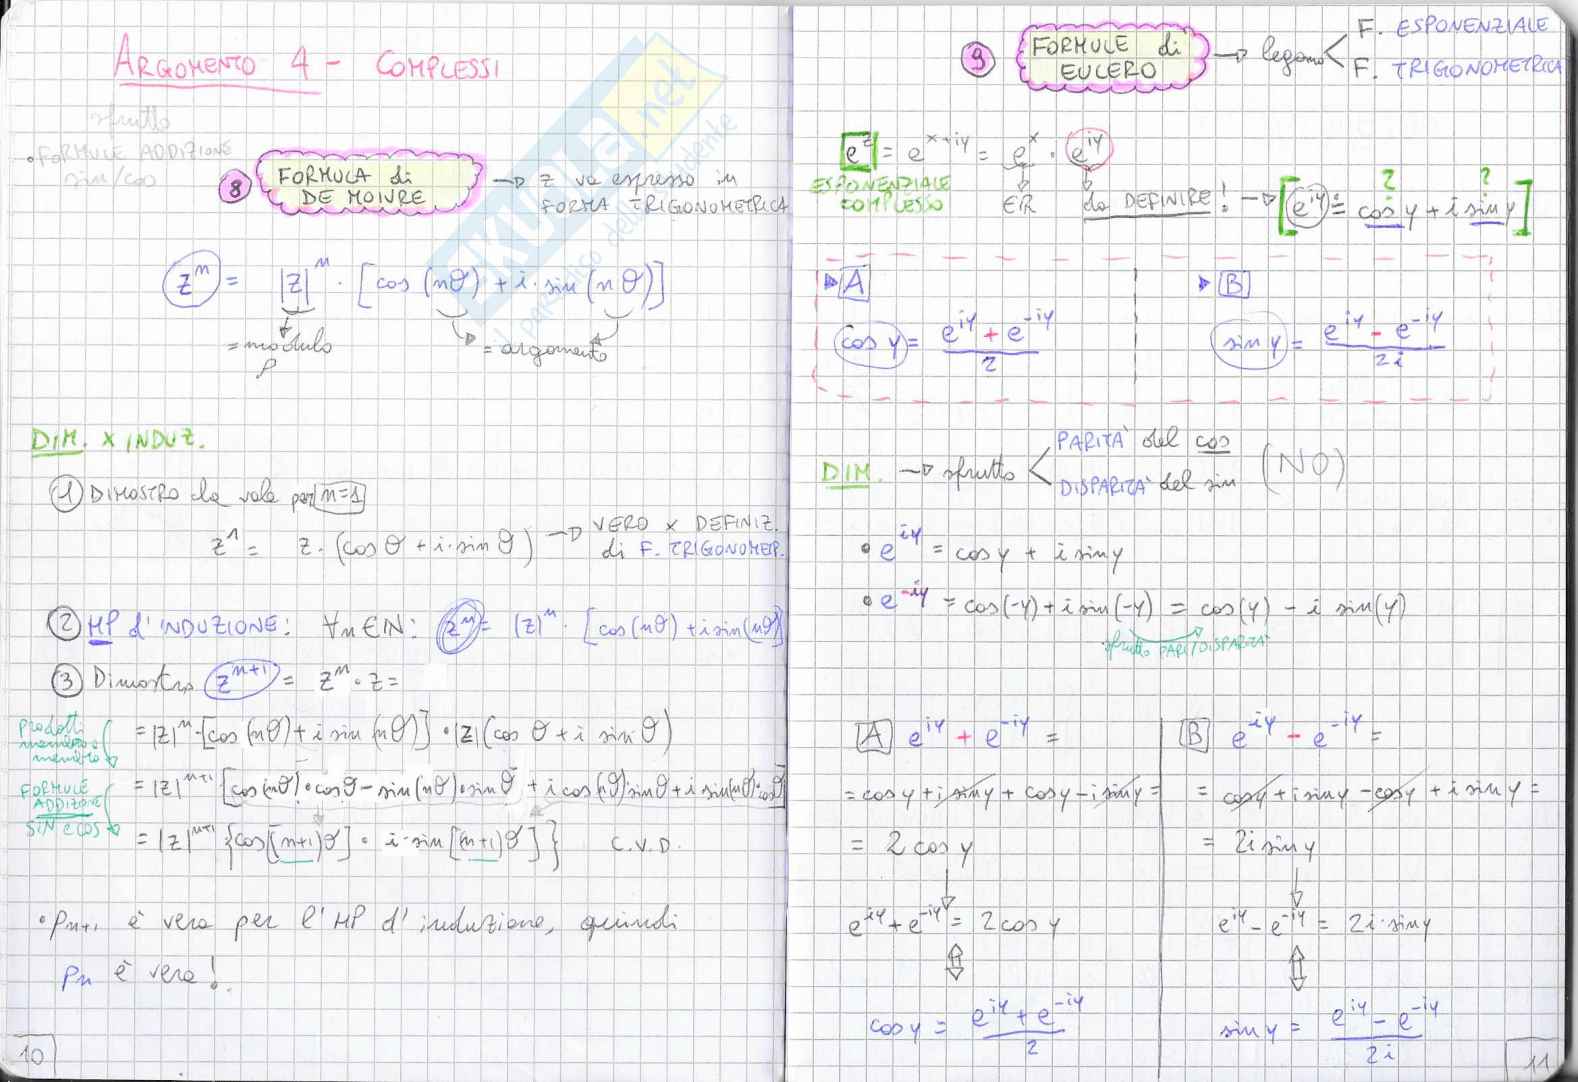 ARGOMENTO 4 - COMPLESSI
sfrutto
• FORMULE ADDIZIONE
sin/cos
8 FORMULA di
DE MOIVRE
→ z va espresso in
FORMA TRIGONOMETRICA
zⁿ = |z|ⁿ · [cos (nθ) + i · sin (nθ)]
= modulo
ρ
= argomento
DIM. x INDUZ.
① DIMOSTRO la vale per n=1
z¹ = z · (cos θ + i · sin θ) → VERO x DEFINIZ.
di F. TRIGONOMETR.
② HP d'INDUZIONE: ∀n∈ℕ: zⁿ = |z|ⁿ · [cos(nθ) + i sin(nθ)]
③ Dimostro zⁿ⁺¹ = zⁿ · z =
prodotti
membro a
membro
= |z|ⁿ · [cos(nθ) + i sin(nθ)] · |z|(cos θ + i sin θ)
FORMULE
ADDIZIONE
SIN e COS
= |z|ⁿ⁺¹ [cos(nθ) · cosθ - sin(nθ) · sinθ + i cos(nθ) sinθ + i sin(nθ) · cosθ]
= |z|ⁿ⁺¹ {cos[(n+1)θ] · i · sin[(n+1)θ]} C.V.D.
• Pn+1 è vera per l'HP d'induzione, quindi
Pn è vera!
10
9 FORMULE di
EULERO
→ legano < F. ESPONENZIALE
F. TRIGONOMETRICA
e^z = e^(x+iy) = e^x · e^(iy)
ESPONENZIALE
COMPLESSO
∈ℝ
da DEFINIRE! → [e^(iy) = cos y + i sin y]
? ?
▶ A
cos y = (e^(iy) + e^(-iy)) / 2
▶ B
sin y = (e^(iy) - e^(-iy)) / 2i
DIM. → sfrutto < PARITÀ del cos
DISPARITÀ del sin
(NO)
• e^(iy) = cos y + i sin y
• e^(-iy) = cos(-y) + i sin(-y) = cos(y) - i sin(y)
sfrutto PARI/DISPARITÀ
A e^(iy) + e^(-iy) =
= cos y + i sin y + cos y - i sin y =
= 2 cos y
e^(iy) + e^(-iy) = 2 cos y
⇕
cos y = (e^(iy) + e^(-iy)) / 2
B e^(iy) - e^(-iy) =
= cos y + i sin y - cos y + i sin y =
= 2i sin y
e^(iy) - e^(-iy) = 2i · sin y
⇕
sin y = (e^(iy) - e^(-iy)) / 2i
11
SKUOLA.net
il paradiso dello studente